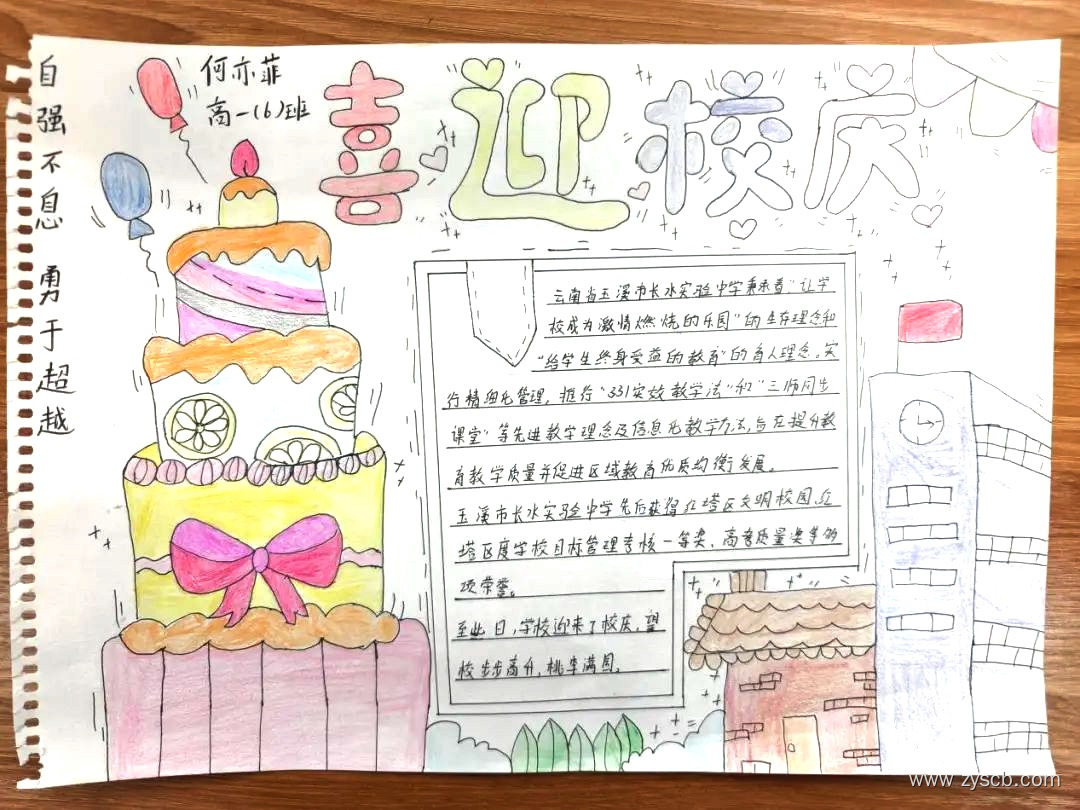 自强不息 勇于超越
何亦菲
高一(6)班
喜迎校庆
云南省玉溪市长水实验中学秉承着"让学
校成为激情燃烧的乐园"的生存理念和
"给学生终身受益的教育"的育人理念。实
行精细化管理，推行"331实效教学法"和"三师同步
课堂"等先进教学理念及信息化教学方法，旨在提升教
育教学质量并促进区域教育优质均衡发展。
玉溪市长水实验中学先后获得红塔区文明校园、红
塔区度学校目标管理考核一等奖、高考质量奖等多
项荣誉。
至此日，学校迎来了校庆，望
校步步高升，桃李满园。
www.zyscb.com